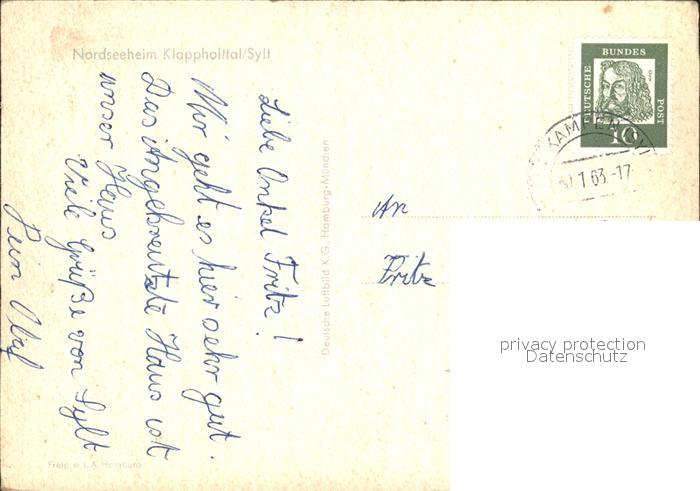 Nordseeheim Klappholttal/Sylt
Liebe Onkel Fritz!
Mir geht es hier sehr gut.
Das Angekreutzte Haus ist
unser Haus
Viele Grüße von Sylt
Dein Olaf
Deutsche Luftbild K.G. Hamburg-München
DEUTSCHE
BUNDES
POST
Dürer
10
KAMPEN
.1.63.-17
An
Fritz
privacy protection
Datenschutz
Freig. d. L.A. Hamburg